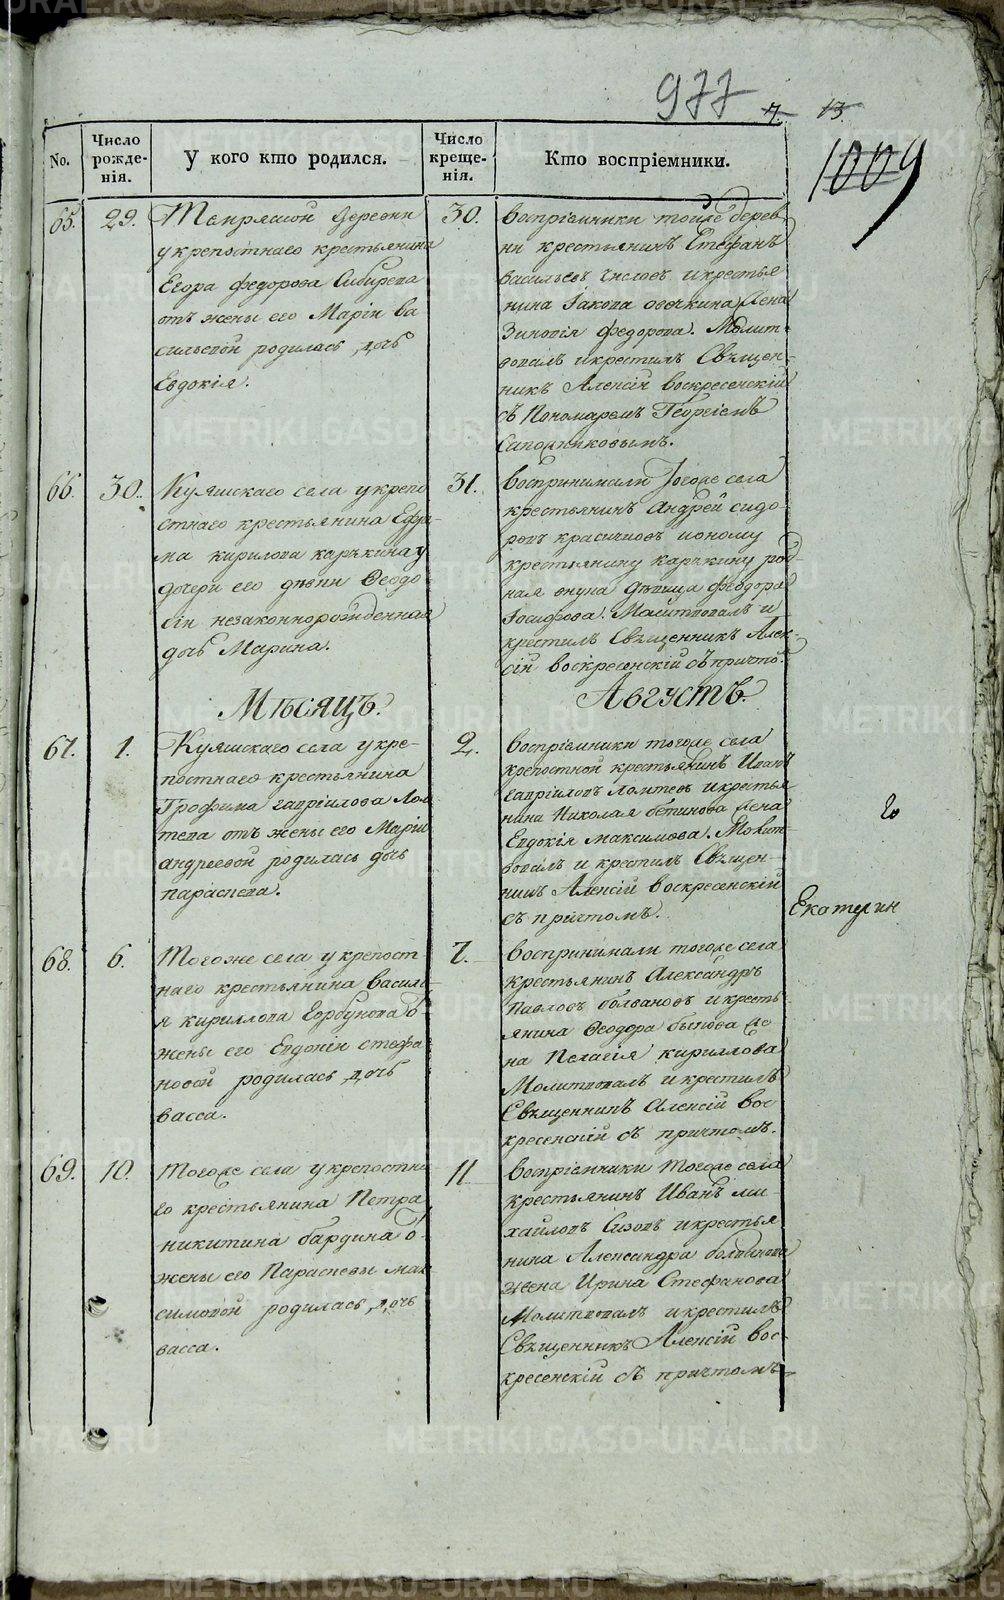 977
7. 13.
1009
No.
Число рожденія.
У кого кто родился.
Число крещенія.
Кто воспріемники.
65. 29.
деревни
укрепостнаго крестьянина
Егора Федорова Сибирева
отъ жены его Маріи Ва
сильевой родилась дочь
Евдокія.
30.
Воспріемники тойже дерев
ни крестьянинъ Стефанъ
Васильевъ икрестья
нина Іакова Овечкина жена
Зиновія Федорова. Молит
вовалъ икрестилъ Священ
никъ Алексій Воскресенскій
съ Пономаремъ Георгіемъ
Сапожниковымъ.
66. 30.
Куяшскаго села укрепо
стнаго крестьянина Ефи
ма Кирилова Карькина у
дочери его дѣвки Ѳеодо
сіи незаконнорожденная
дочь Марина.
31.
Воспринимали тогоже села
крестьянинъ Андрей Сидо
ровъ
крестьянину Карькину род
ная внука дѣвица Феодора
Іосифова. Молитвовалъ и
крестилъ Священникъ Алек
сій Воскресенскій съ причто.
Мѣсяцъ.
Августъ.
67. 1.
Куяшскаго села укре-
постнаго крестьянина
Трофима Гавріилова Лом
тева отъ жены его Маріи
Андреевой родилась дочь
Параскева.
2.
Воспріемники тогоже села
крепостной крестьянинъ Иванъ
Гавріиловъ Ломтевъ икрестья
нина Николая жена
Евдокія Максимова. Молит
вовалъ и крестилъ Священ
никъ Алексій Воскресенскій
съ причтомъ.
го
Екатерин
68. 6.
Тогоже села укрепост
наго крестьянина Васил
я Кириллова Горбунова о
жены его Евдокіи Стефа
новой родилась дочь
Васса.
7.
Воспринимали тогоже села
крестьянинъ Александръ
Павловъ Болвановъ икресть
янина Ѳеодора Быкова же
на Пелагія Кириллова
Молитвовалъ икрестилъ
Священникъ Алексій Вос
кресенскій съ причтомъ.
69. 10.
Тогоже села укрепостна
го крестьянина Петра
Никитина Бардина о
жены его Параскевы Мак
симовой родилась дочь
Васса.
11.
Воспріемники тогоже села
крестьянинъ Иванъ Ми
хайловъ Сизовъ икрестья
нина Александра Болванова
жена Ирина Стефанова
Молитвовалъ икрестилъ
Священникъ Алексій Вос
кресенскій съ причтомъ
METRIKI.GASO-URAL.RU